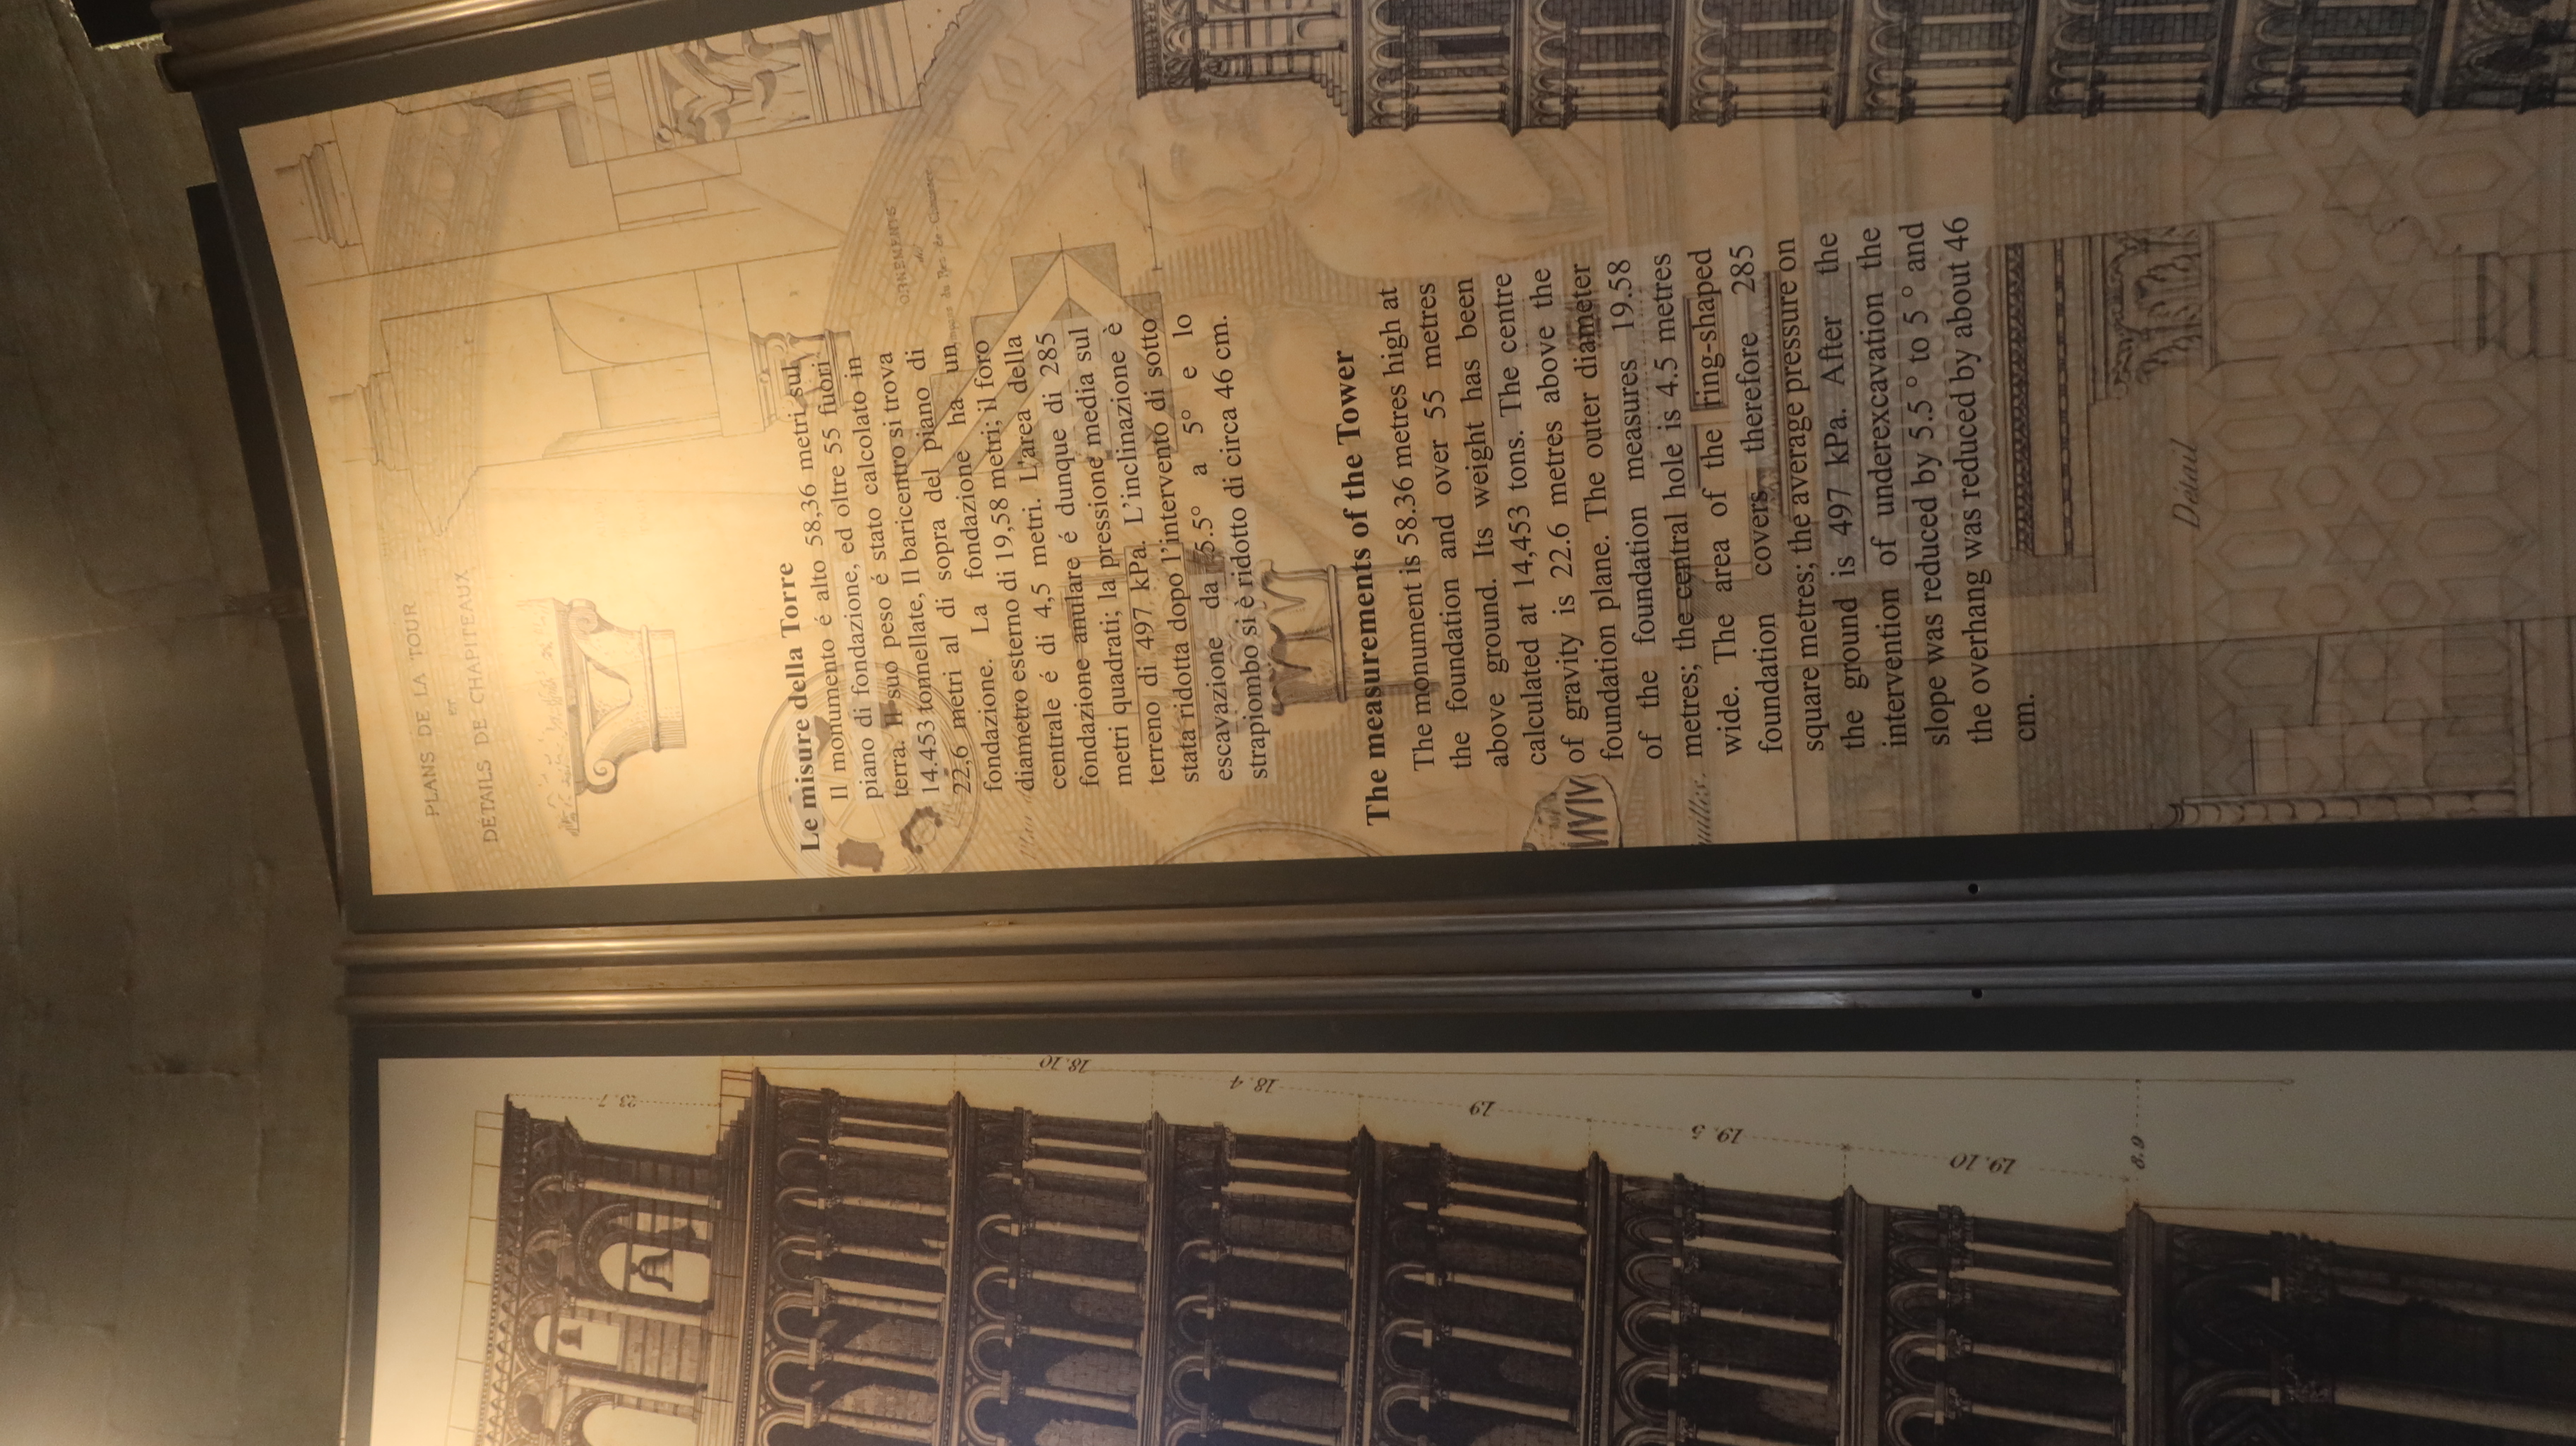 PLANS DE LA TOUR
ET
DÉTAILS DE CHAPITEAUX
ORNEMENTS
du
Le misure della Torre
Il monumento é alto 58,36 metri sul
piano di fondazione, ed oltre 55 fuori
terra. Il suo peso é stato calcolato in
14.453 tonnellate, Il baricentro si trova
22,6 metri al di sopra del piano di
fondazione. La fondazione ha un
diametro esterno di 19,58 metri; il foro
centrale é di 4,5 metri. L'area della
fondazione anulare é dunque di 285
metri quadrati; la pressione media sul
terreno di 497 kPa. L'inclinazione è
stata ridotta dopo l'intervento di sotto
escavazione da 5.5° a 5° e lo
strapiombo si è ridotto di circa 46 cm.
The measurements of the Tower
The monument is 58.36 metres high at
the foundation and over 55 metres
above ground. Its weight has been
calculated at 14,453 tons. The centre
of gravity is 22.6 metres above the
foundation plane. The outer diameter
of the foundation measures 19.58
metres; the central hole is 4.5 metres
wide. The area of the ring-shaped
foundation covers therefore 285
square metres; the average pressure on
the ground is 497 kPa. After the
intervention of underexcavation the
slope was reduced by 5.5 ° to 5 ° and
the overhang was reduced by about 46
cm.
Détail
23.7
18.10
18.4
19
19.5
19.10